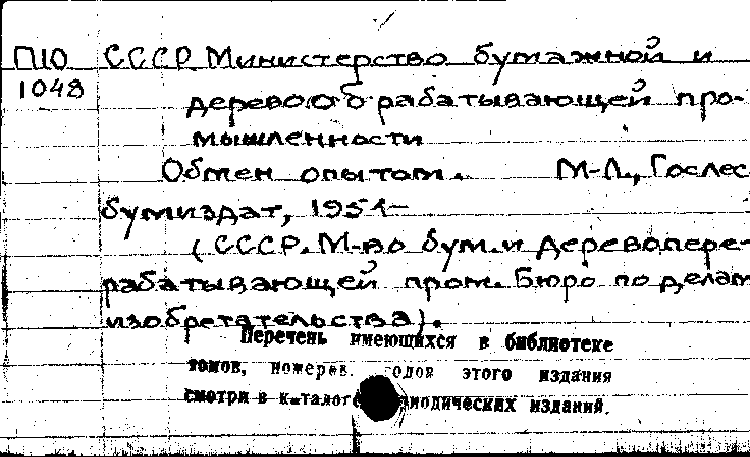 П10 СССР. Министерство бумажной и
1048 деревообрабатывающей про-
мышленности
Обмен опытом. М-Л., Гослес
бумиздат, 1951-
(СССР. М-во бум. и деревопере-
рабатывающей пром. Бюро по делам
изобретательства).
Перечень имеющихся в библиотеке
томов, номеров, годов этого издания
смотри в каталоге периодических изданий.